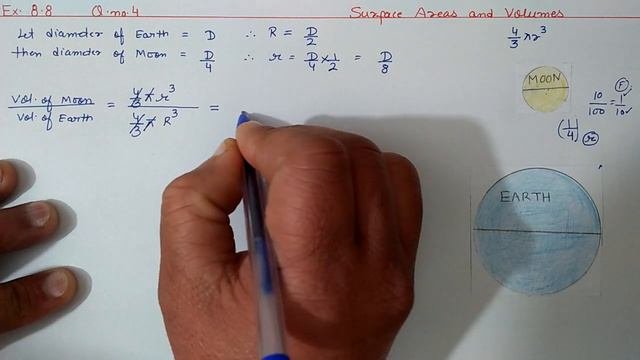 Ex. 8.8 Q.no.4 Surface Areas and Volumes
Let diameter of Earth = D ∴ R = D/2
then diamter of Moon = D/4 ∴ r = D/4 × 1/2 = D/8
4/3 πr³
Vol. of Moon / Vol. of Earth = 4/3 π r³ / 4/3 π R³ =
MOON
10/100 = 1/10
F
(1/4) r
EARTH